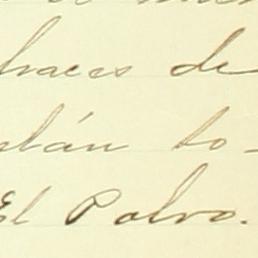 haces de
lán to-
El Polvo.